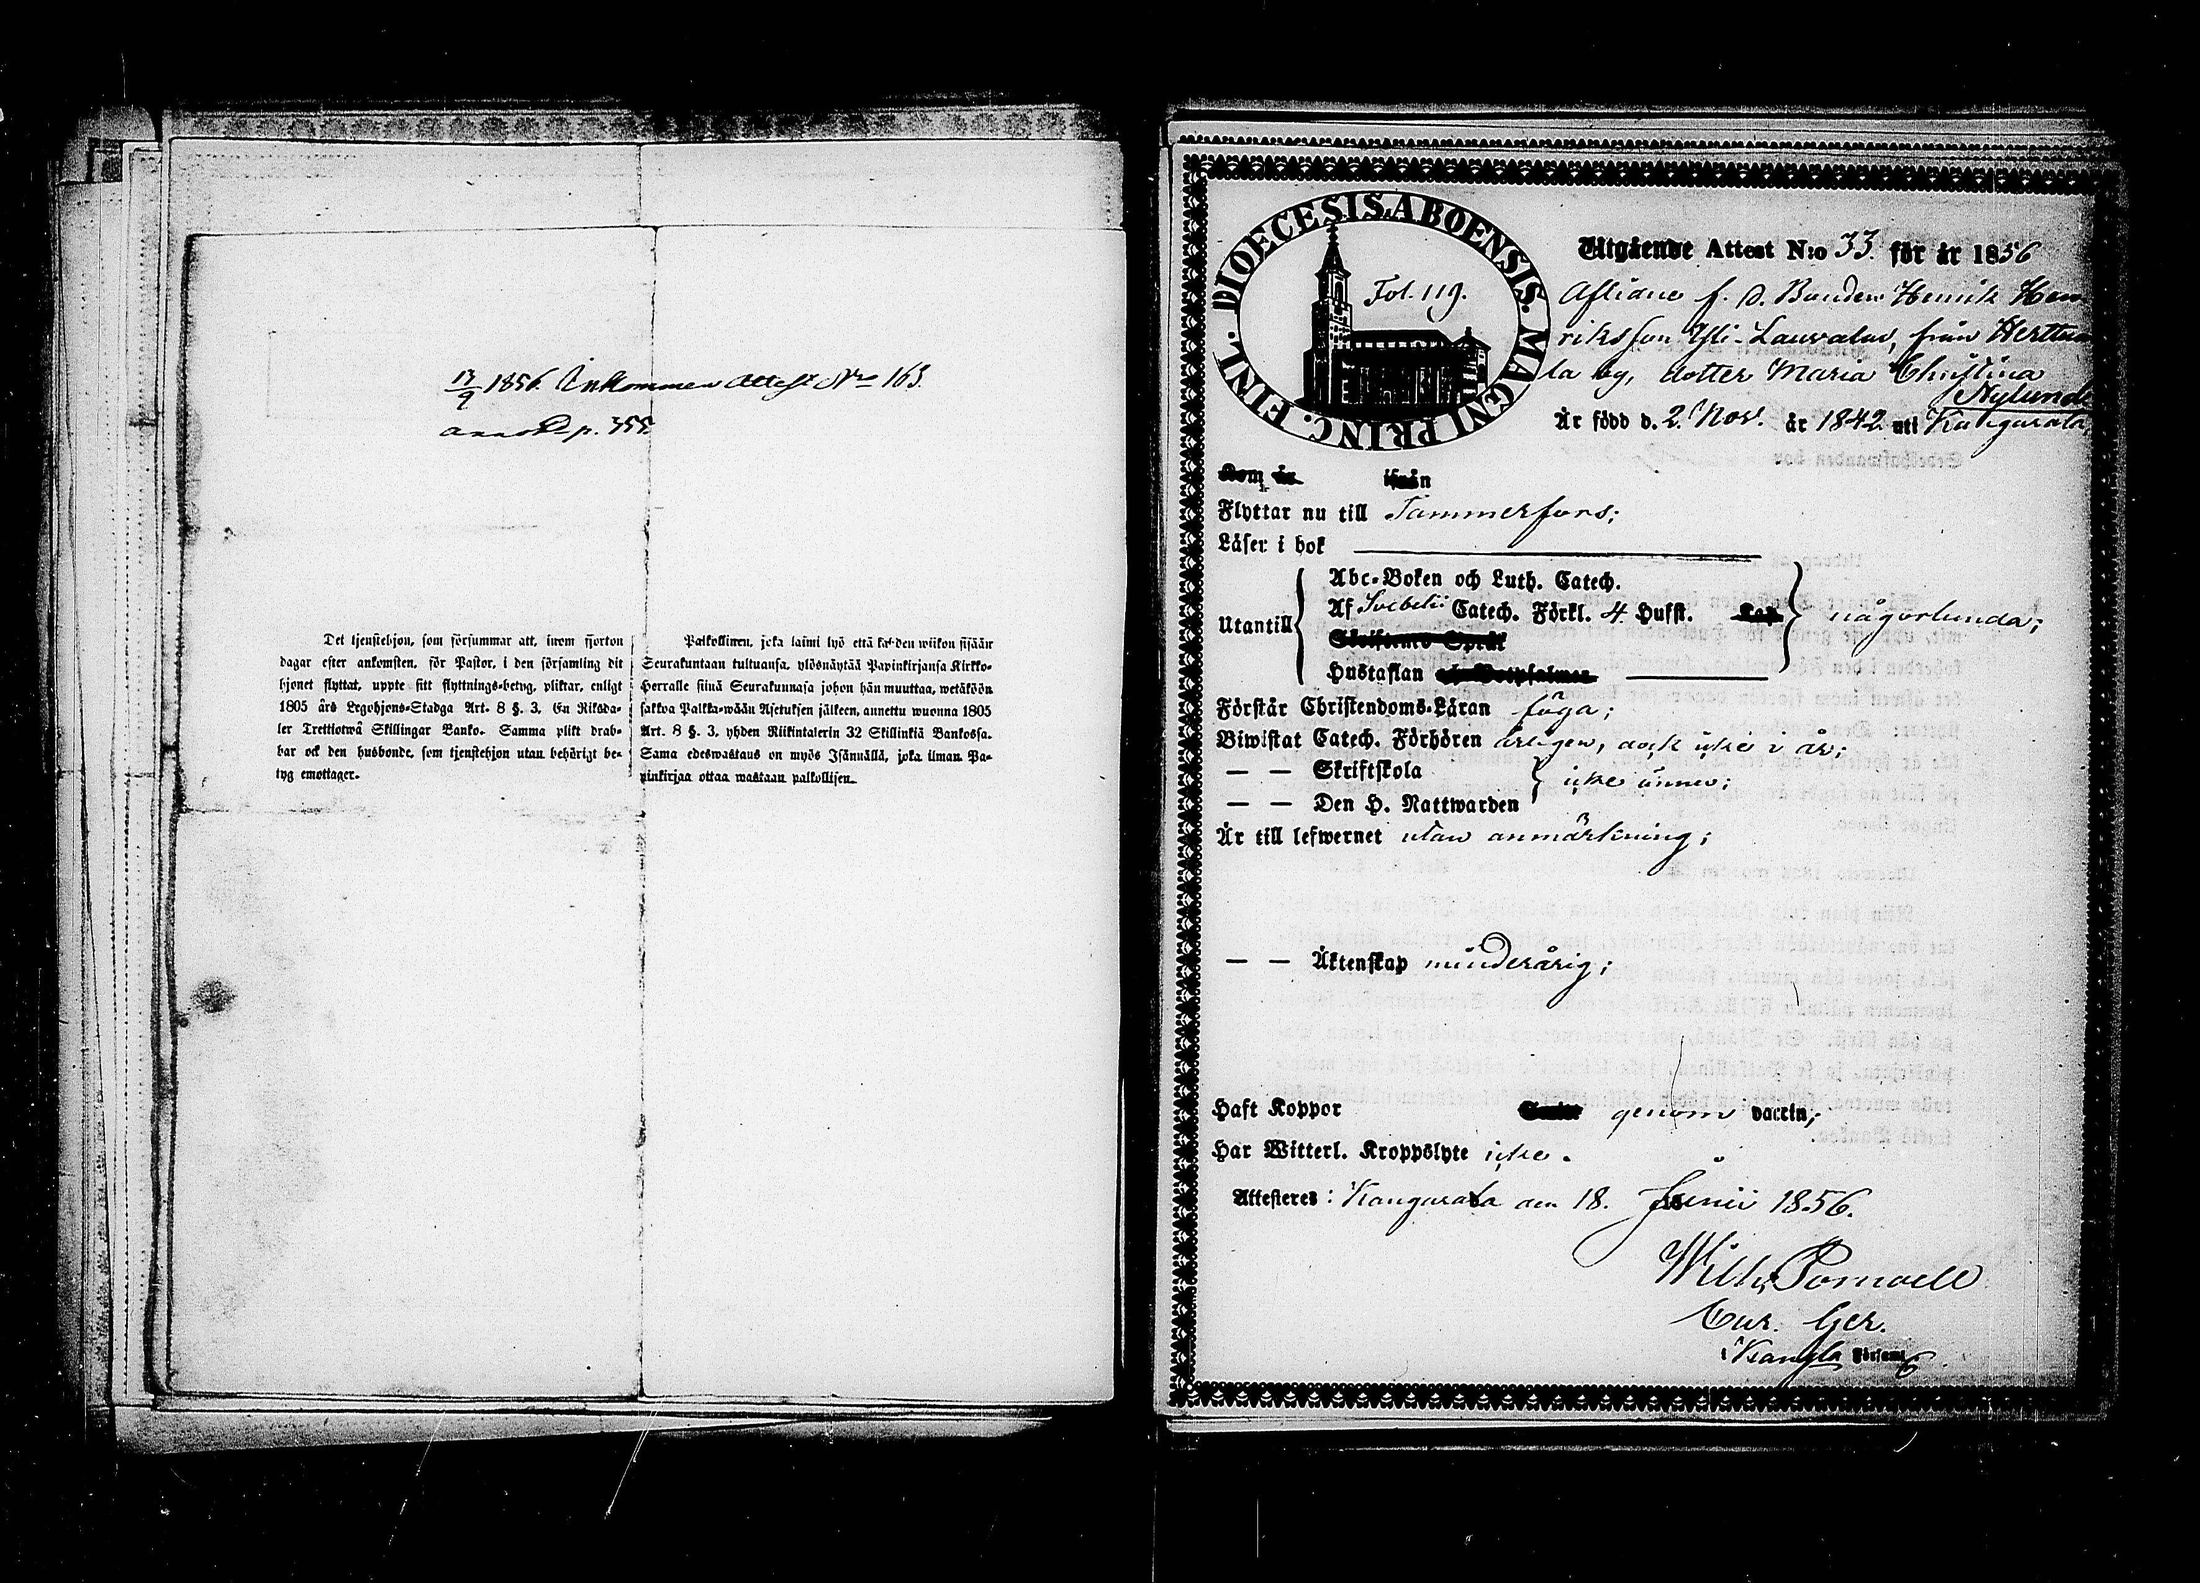 13/9 1856. Inkommen Attest N:o 163.
annot. p. 355.
Det tjenstehjon, som försummar att, inom fjorton
dagar efter ankomsten, för Pastor, i den församling dit
hjonet flyttat, uppte sitt flyttnings-betyg, pliktar, enligt
1805 års Legohjons-Stadga Art. 8 §. 3. En Riksda-
ler Trettiotwå Skillingar Banko. Samma plikt drab-
bar ock den husbonde, som tjenstehjon utan behörigt be-
tyg emottager.
Palkollinen, joka laimi lyö että kahden wiikon sisään
Seurakuntaan tultuansa, ylösnäytää Papinkirjansa Kirkko-
Herralle siinä Seurakunnasa johon hän muuttaa, wetäköön
sakkoa Palkka-wään Asetuksen jälkeen, annettu wuonna 1805
Art. 8 §. 3, yhden Riikintalerin 32 Skillinkiä Bankossa.
Sama edeswastaus on myös Isännällä, joka ilman Pa-
pinkirjaa ottaa wastaan palkollisen.
DIOECESIS ABOENSIS. MAGNI PRINC. FINL.
Fol. 119.
Utgående Attest N:o 33. för år 1856
Aflidne f. d. Bonden Henrik Hen-
riksson Yli-Lauvalas, från Herttua
la by, dotter Maria Christina
Nylund
Är född d. 2. Nov. år 1842 uti Kangasala,
Kom år ifrån
Flyttar nu till Tammerfors;
Läser i bok
Utantill
Abc-Boken och Luth. Catech.
Af Svebelii Catech. Förkl. 4. Hufst. Kap
Skriftenes Språk
Hustaflan och Botpsalmer
någorlunda;
Förstår Christendoms-Läran föga;
Biwistat Catech. Förhören årligen, dock icke i år;
— — Skriftskola
— — Den H. Nattwarden
icke ännu;
Är till lefwernet utan anmärkning;
— — Äktenskap minderårig;
Haft Koppor genom vaccin;
Har Witterl. Kroppslyte icke.
Attesteres: Kangasala den 18. Junii 1856.
Wilh. Pomoell
Cur. Ger.
i Kangla Församl.